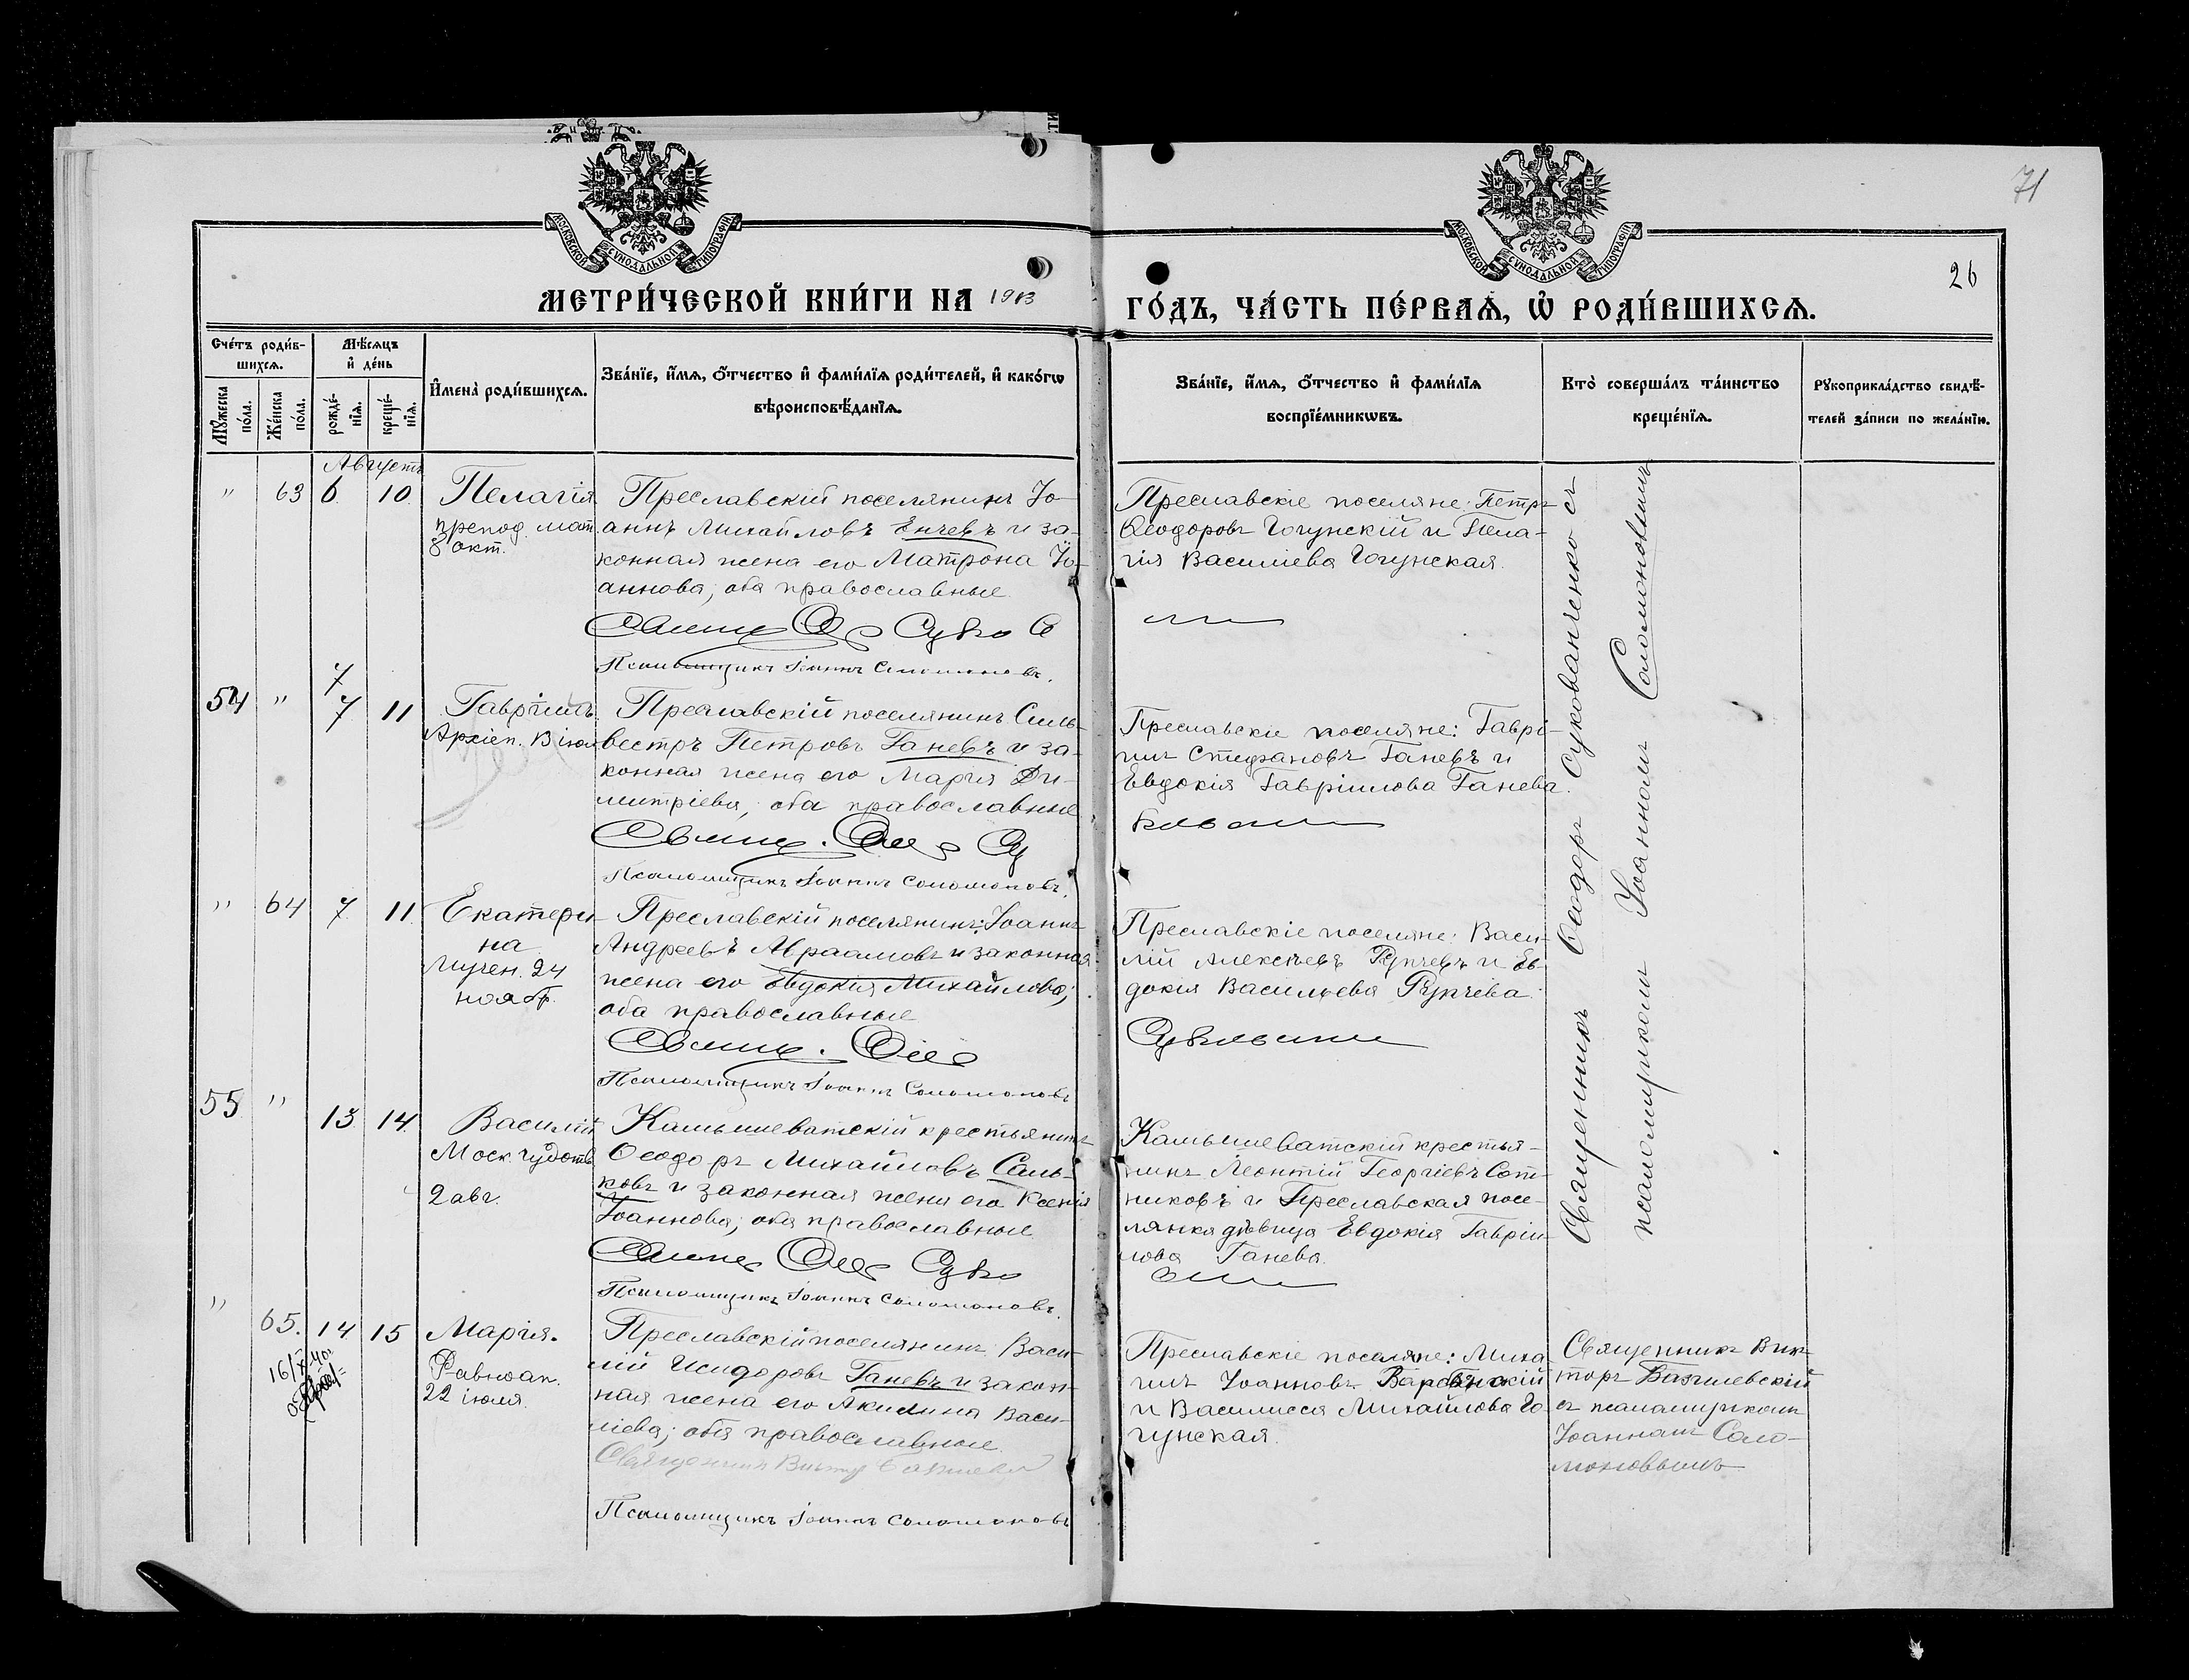 71
26
МОСКОВСКОЙ СѴНОДАЛЬНОЙ ТИПОГРАФІИ
МОСКОВСКОЙ СѴНОДАЛЬНОЙ ТИПОГРАФІИ
МЕТРИ́ЧЕСКОЙ КНИ́ГИ НА 1913 ГО́ДЪ, ЧА́СТЬ ПЕ́РВАѦ, Ѡ҆ РОДИ́ВШИХСѦ.
Сче́тъ роди́в-
шихсѧ.
Мꙋ́жеска по́ла.
Же́нска по́ла.
Мѣ́сѧцъ
и҆ де́нь
рожде́-
нїѧ.
креще́-
нїѧ.
И҆мена̀ роди́вшихсѧ.
Зва́нїе, и҆́мѧ, ѻ҆́тчество и҆ фами́лїѧ роди́телей, и҆ како́гѡ
вѣроисповѣ́данїѧ.
Зва́нїе, и҆́мѧ, ѻ҆́тчество и҆ фами́лїѧ
воспрїе́мникѡвъ.
Кто̀ соверша́лъ та́инство
креще́нїѧ.
Рꙋкоприкла́дство свидѣ́-
телей за́писи по жела́нїю.
Августъ
" 63 6. 10.
Пелагія
препод. мат.
8 окт.
Преславскій поселянинъ Іо-
аннъ Михайловъ Енчевъ и за-
конная жена его Матрона Іо-
аннова; оба православные.
Псаломщикъ Іоаннъ Соломоновъ.
Преславскіе поселяне: Петръ
Ѳеодоровъ Гогунскій и Пела-
гія Василіева Гогунская.
Священникъ Сукованченко съ
псаломщикомъ Іоанномъ Соломоновымъ
7
54 " 7 11
Гавріилъ
Архіеп. 13 іюл
Преславскій поселянинъ Силь-
вестръ Петровъ Ганевъ и за-
конная жена его Марія Ди-
митріева; оба православные
Псаломщикъ Іоаннъ Соломоновъ.
Преславскіе поселяне: Гаврі-
илъ Стефановъ Ганевъ и
Евдокія Гавріилова Ганева.
" 64 7 11
Екатери-
на
Мучен. 24
ноябр.
Преславскій поселянинъ: Іоаннъ
Андреевъ Авраамовъ и законная
жена его Евдокія Михайлова;
оба православные
Псаломщикъ Іоаннъ Соломоновъ
Преславскіе поселяне: Васи-
лій Алексѣевъ Рупчевъ и Ев-
докія Васильева Рупчева.
55 " 13 14.
Василій
Моск. чудотв.
2 авг.
Камышеватскій крестьянинъ
Ѳеодоръ Михайловъ Саль-
ковъ и законная жена его Ксенія
Іоаннова; оба православные
Псаломщикъ Іоаннъ Соломоновъ.
Камышеватскій крестья-
нинъ Леонтій Георгіевъ Сот-
никовъ и Преславская посе-
лянка дѣвица Евдокія Гавріи-
лова Ганева.
" 65. 14 15
Марія.
Равноап.
22 іюля.
Преславскій поселянинъ Васи-
лій Исидоровъ Ганевъ и закон-
ная жена его Акилина Васи-
ліева; оба православные.
Псаломщикъ Іоаннъ Соломоновъ
Преславскіе поселяне: Миха-
илъ Іоанновъ
и Василисса Михайлова Го-
гунская.
Священникъ Вик-
торъ Базилевскій
съ псаломщикомъ
Іоанномъ Соло-
моновымъ